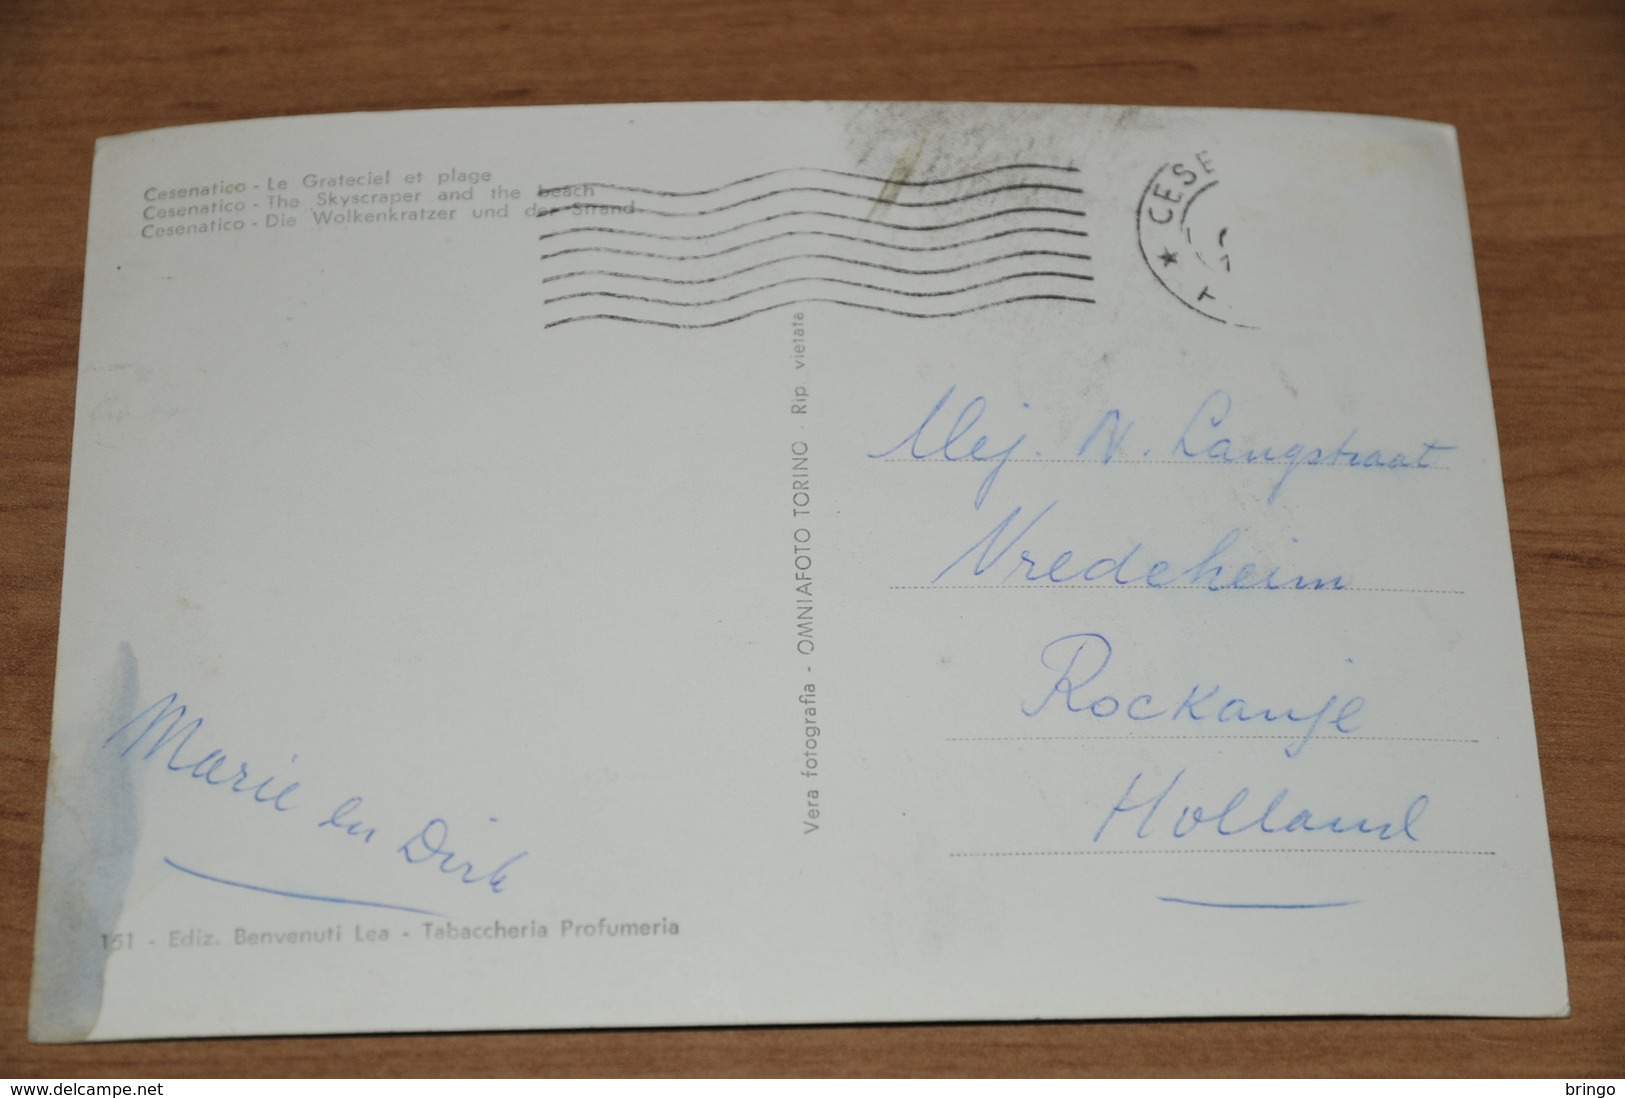 Cesenatico - Le Grateciel et plage
Cesenatico - The Skyscraper and the beach
Cesenatico - Die Wolkenkratzer und der Strand
CESE
Vera fotografia - OMNIAFOTO TORINO - Rip vietata
Mej. N. Langstraat
Vredeheim
Rockanje
Holland
Marie en Dirk
151 - Ediz. Benvenuti Lea - Tabaccheria Profumeria
www.delcampe.net
bringo